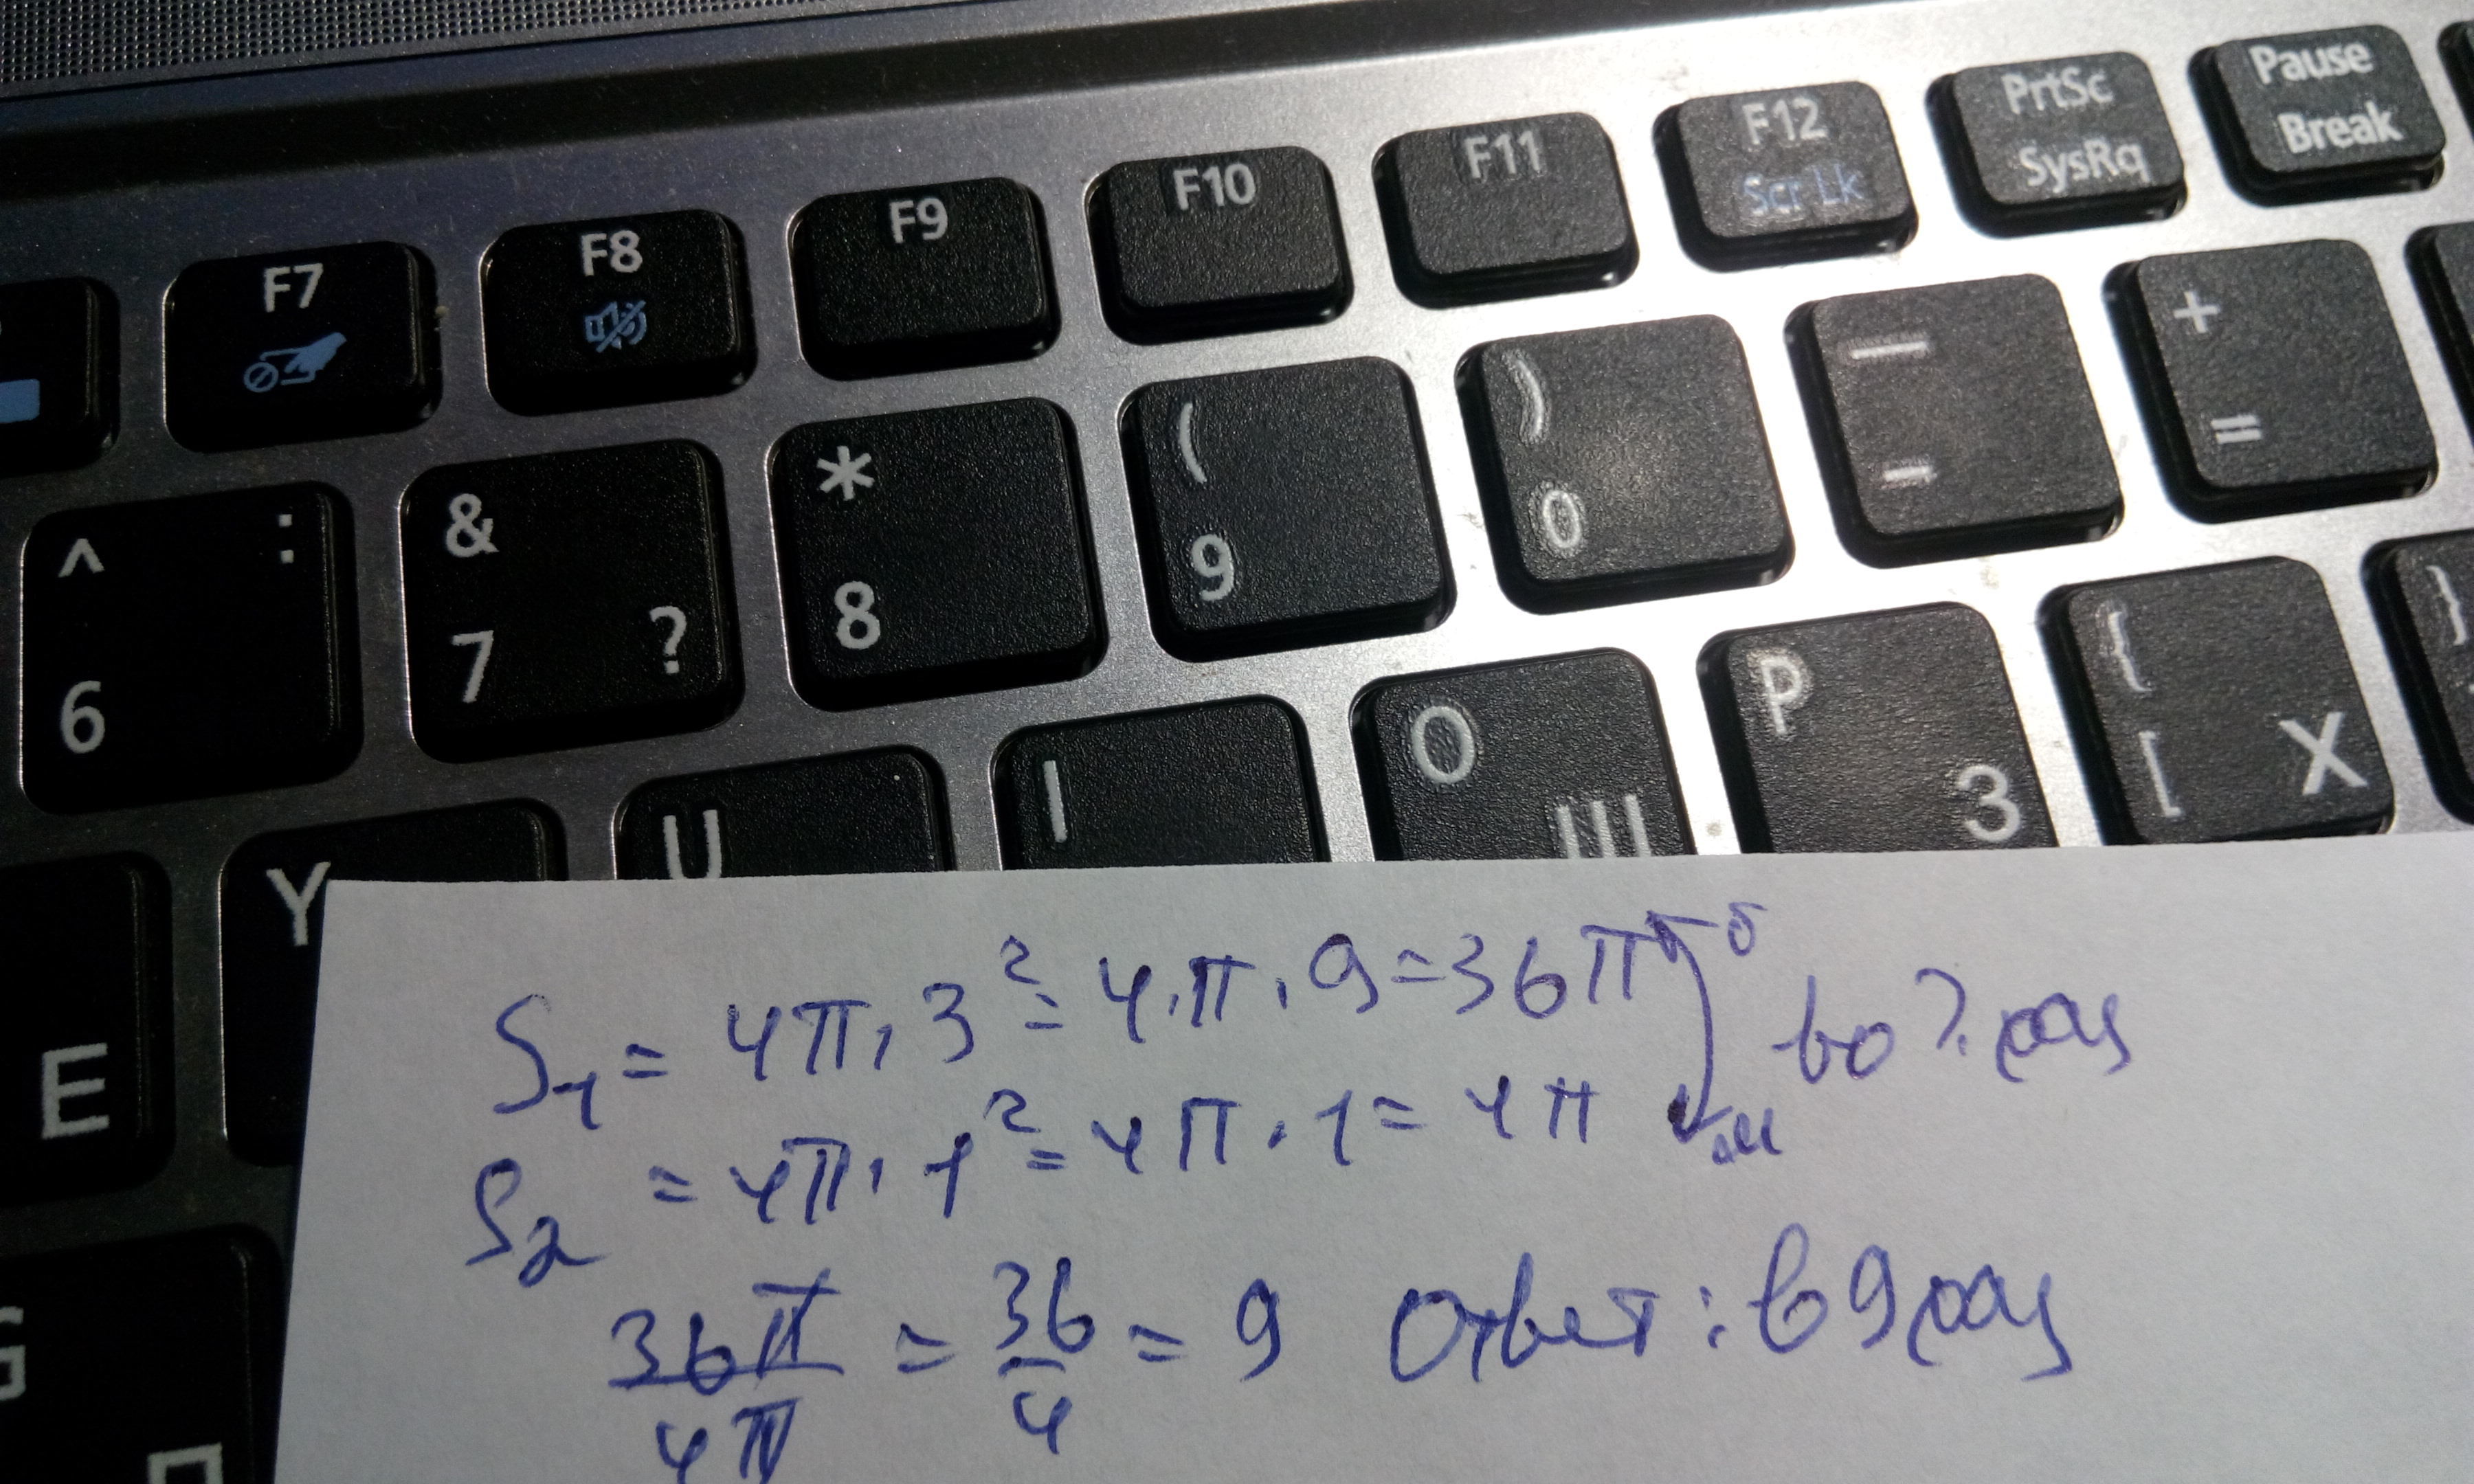 Pause
Break
PrtSc
SysRq
F12
Scr Lk
F11
F10
F9
F8
F7
+
=
—
-
)
0
(
9
*
8
&
7 ?
^ :
6
{
[ Х
}
P
З
O
Ш
I
U
Y
Е
П
S₁ = 4π · 3² = 4 · π · 9 = 36π б
во ? раз
S₂ = 4π · 1² = 4π · 1 = 4π м
36π/4π = 36/4 = 9 Ответ: в 9 раз